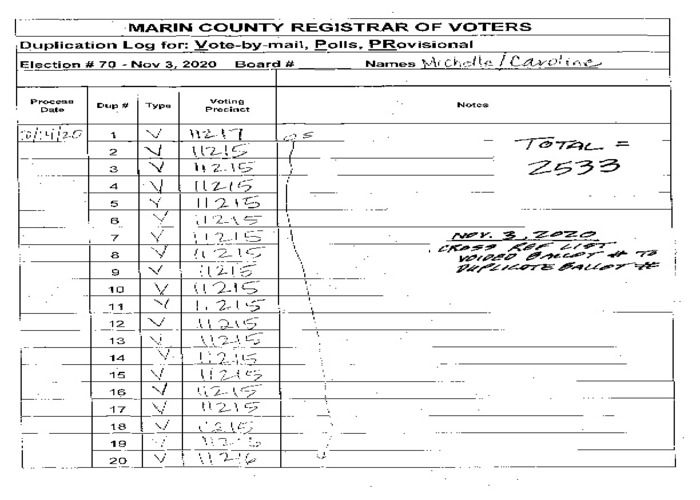 MARIN COUNTY REGISTRAR OF VOTERS
Duplication Log for: Vote-by-mail, Polls, PRovisional
Election # 70 - Nov 3, 2020 Board # Names Michelle/Caroline
Process Date Dup # Type Voting Precinct Notes
1 V 11217
TOTAL =
2533
2 V 11215
3 V 11215
4 V 11215
5 V 11215
6 V 11215
7 V 11215
8 V 11215
9 V 11215
10 V 11215
11 V 11215
12 V 11215
13 V 11215
14 V 11215
15 V 11215
16 V 11215
17 V 11215
18 V
19
20 V 11216
NOV. 3, 2020
CROSS REF LIST
VOIDED BALLOT # TO
DUPLICATE BALLOT #